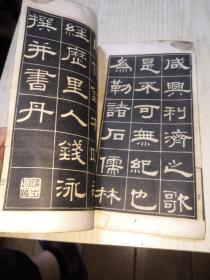 咸興利濟之歌
是不可無紀也
為勒諸石儒林
經歷里人錢泳
撰并書丹